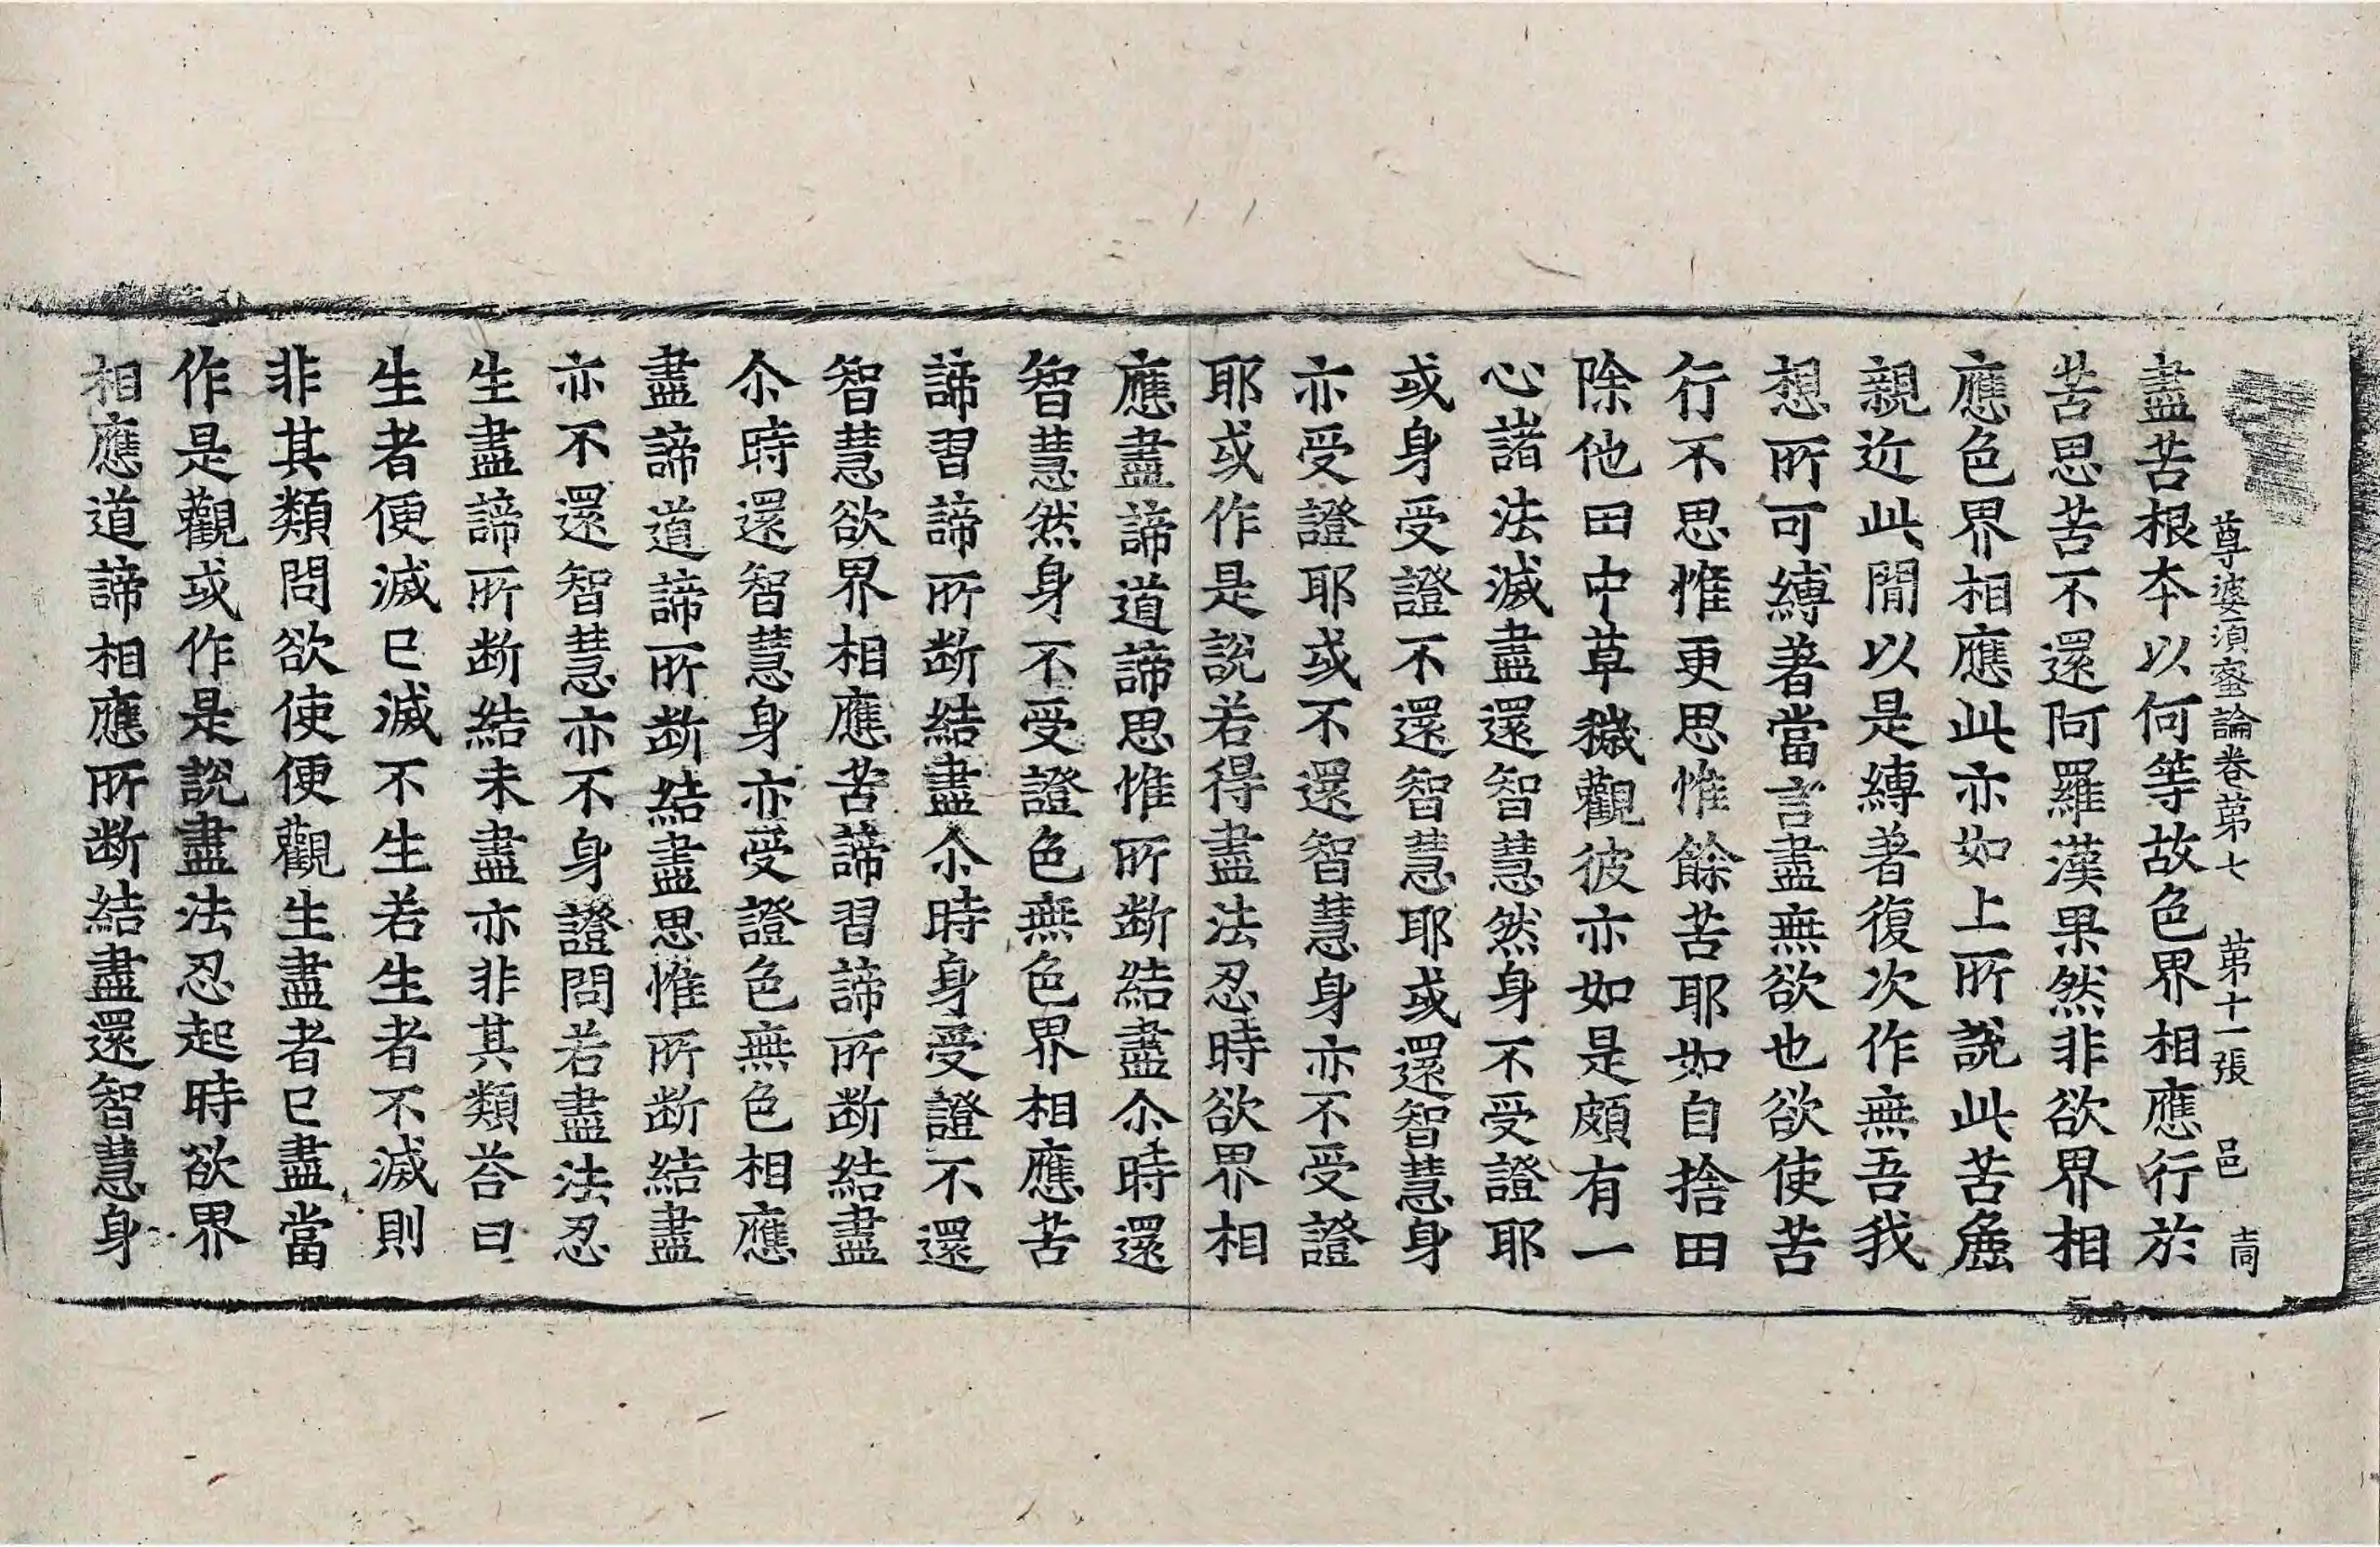 尊婆須蜜論卷第七　第十一張　邑　𡊮
盡苦根本以何等故色界相應行於
苦思苦不還阿羅漢果然非欲界相
應色界相應此亦如上所說此苦麁
親近此閒以是縛著復次作無吾我
想所可縛著當言盡無欲也欲使苦
行不思惟更思惟餘苦耶如自捨田
除他田中草穢觀彼亦如是頗有一
心諸法滅盡還智慧然身不受證耶
或身受證不還智慧耶或還智慧身
亦受證耶或不還智慧身亦不受證
耶或作是說若得盡法忍時欲界相
應盡諦道諦思惟所断結盡尒時還
智慧然身不受證色無色界相應苦
諦習諦所断結盡尒時身受證不還
智慧欲界相應苦諦習諦所断結盡
尒時還智慧身亦受證色無色相應
盡諦道諦所断結盡思惟所断結盡
亦不還智慧亦不身證問若盡法忍
生盡諦所断結未盡亦非其類荅曰
生者便滅已滅不生若生者不滅則
非其類問欲使便觀生盡者已盡當
作是觀或作是說盡法忍起時欲界
相應道諦相應所断結盡還智慧身